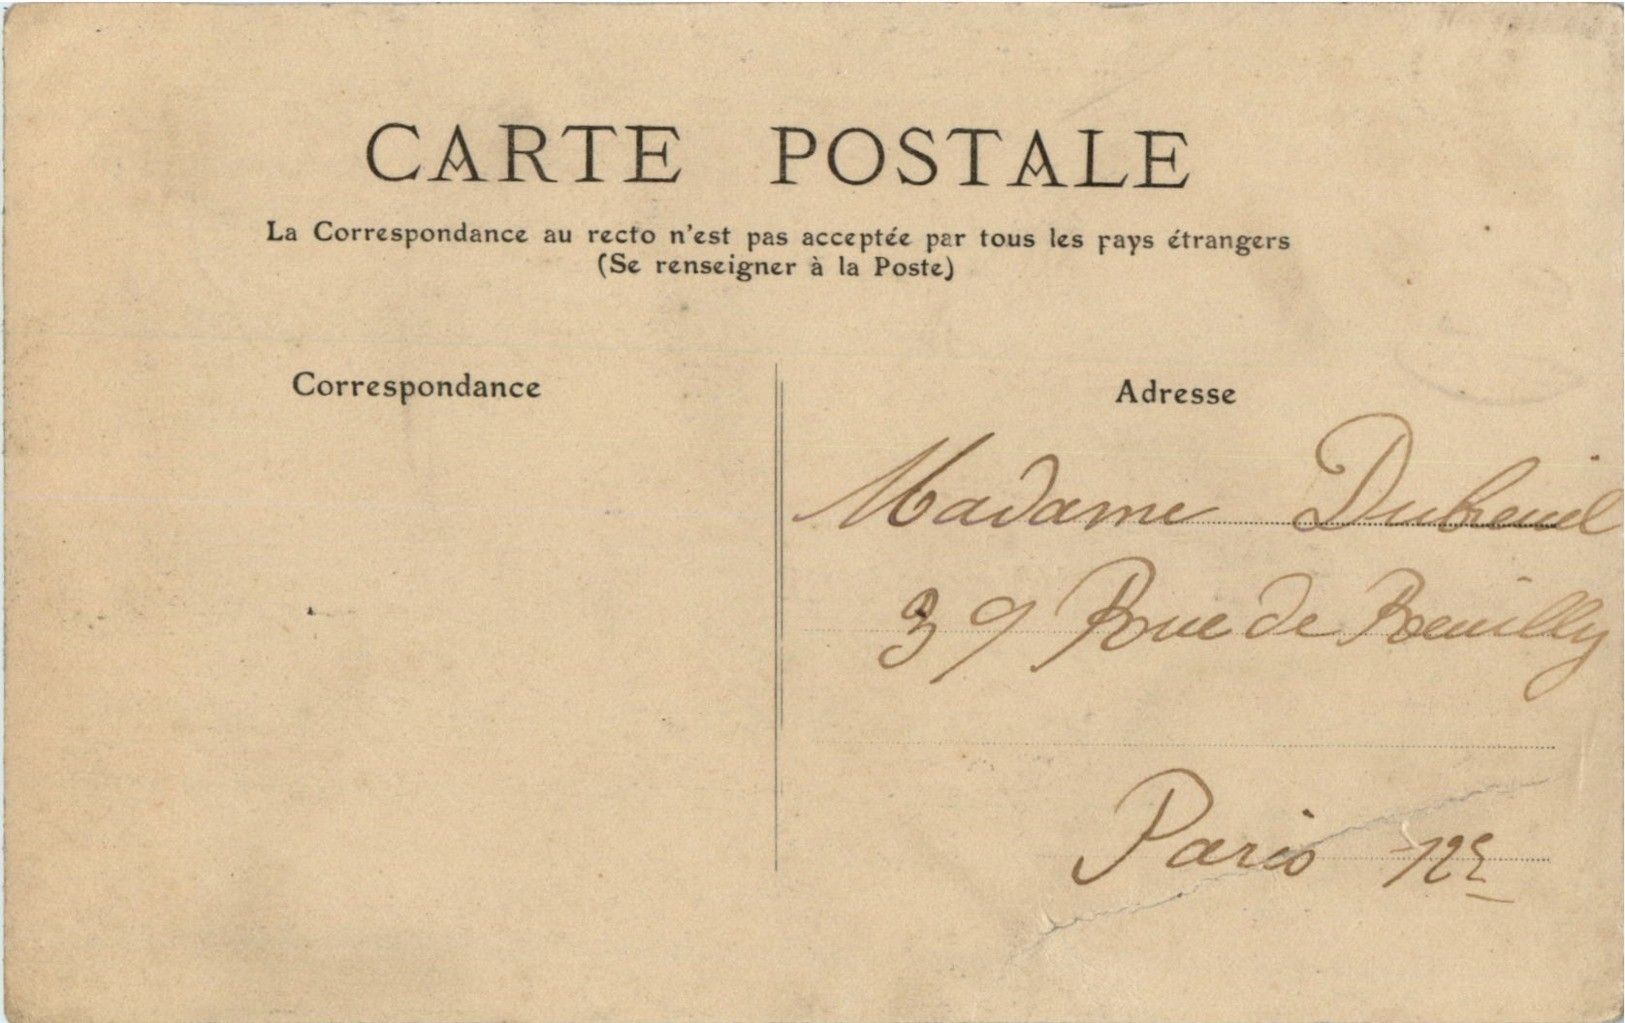 CARTE POSTALE
La Correspondance au recto n'est pas acceptée par tous les pays étrangers
(Se renseigner à la Poste)
Correspondance
Adresse
Madame Dubreuil
39 Rue de Reuilly
Paris 12e